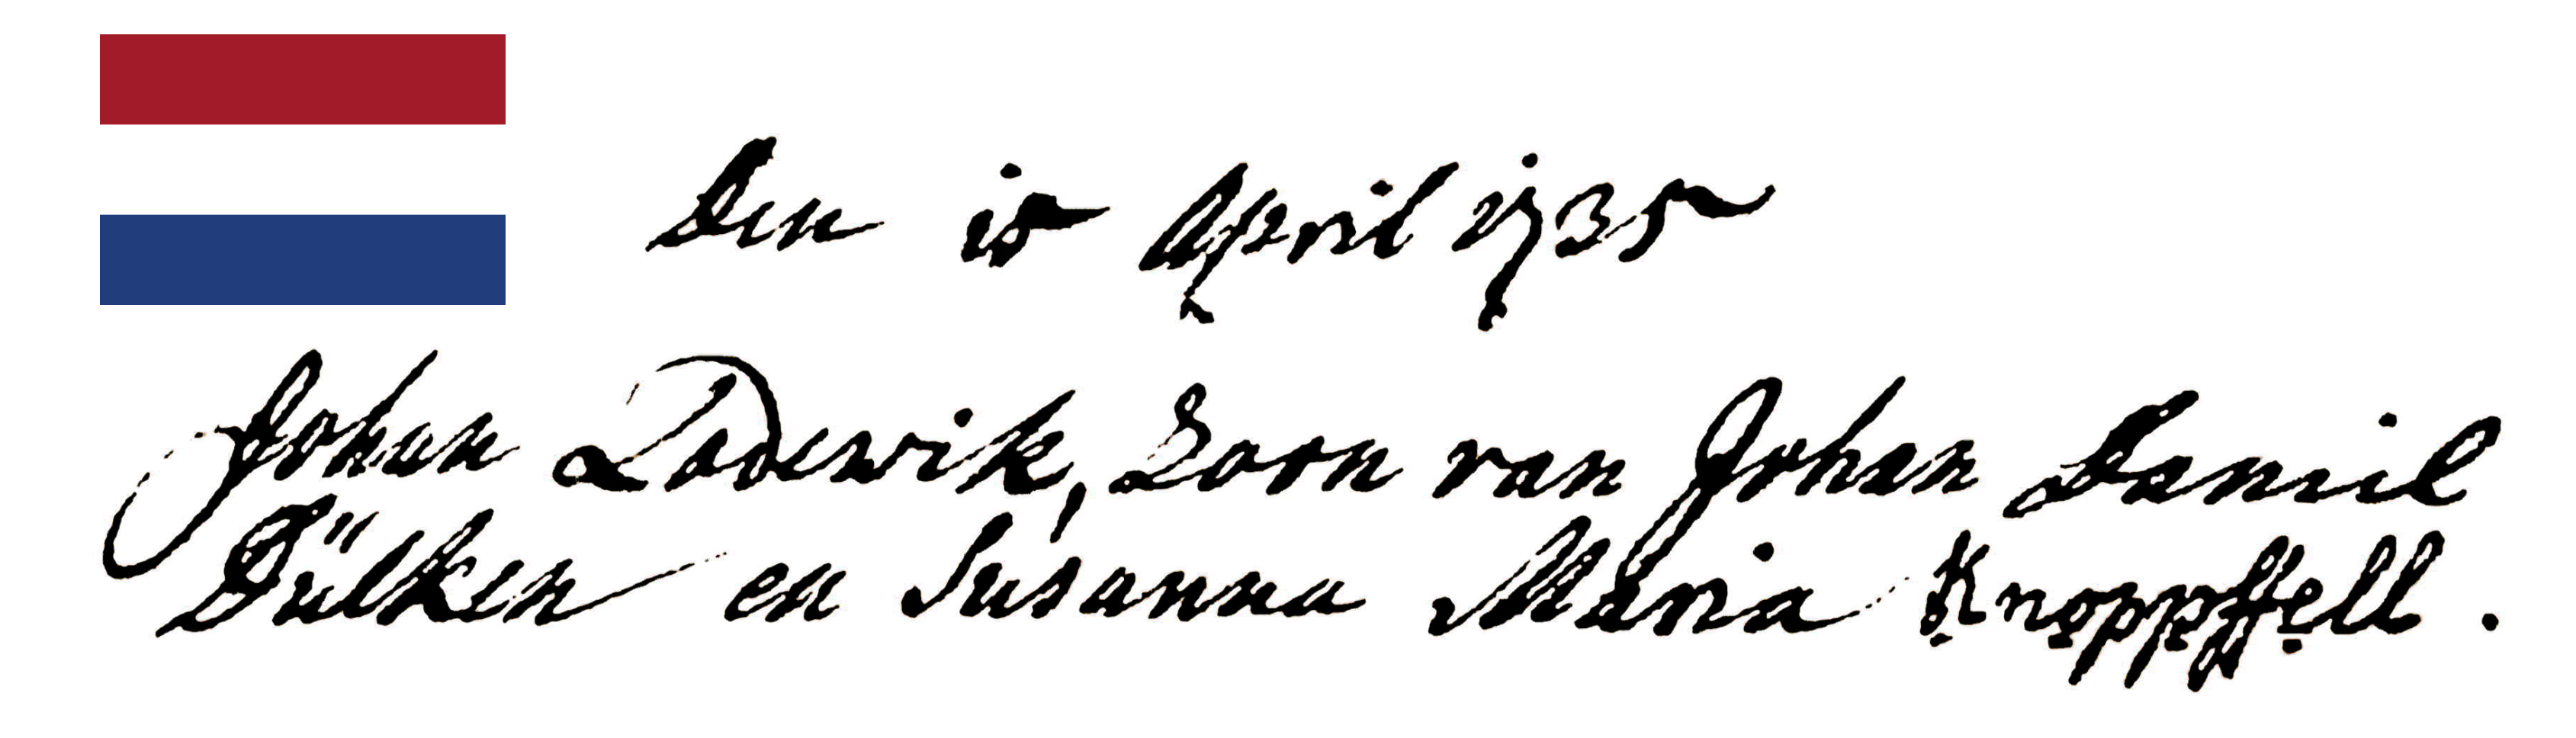 Den 15 April 1735
Johan Lodewik, Soon van Johan Daniel
Dülken en Susanna Maria Knoppffell.